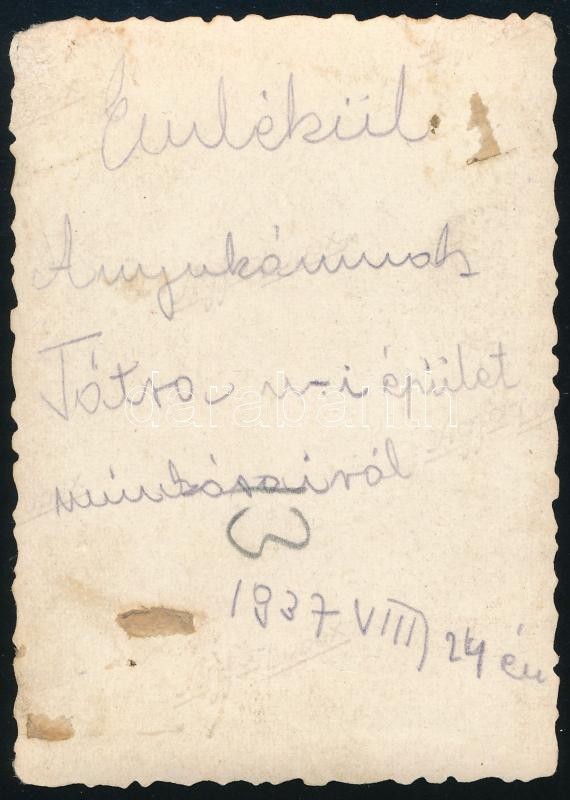 Emlékül
Anyukámnak
Tátra u-i épület
munkásairól
1937 VIII) 24 én
darabanth